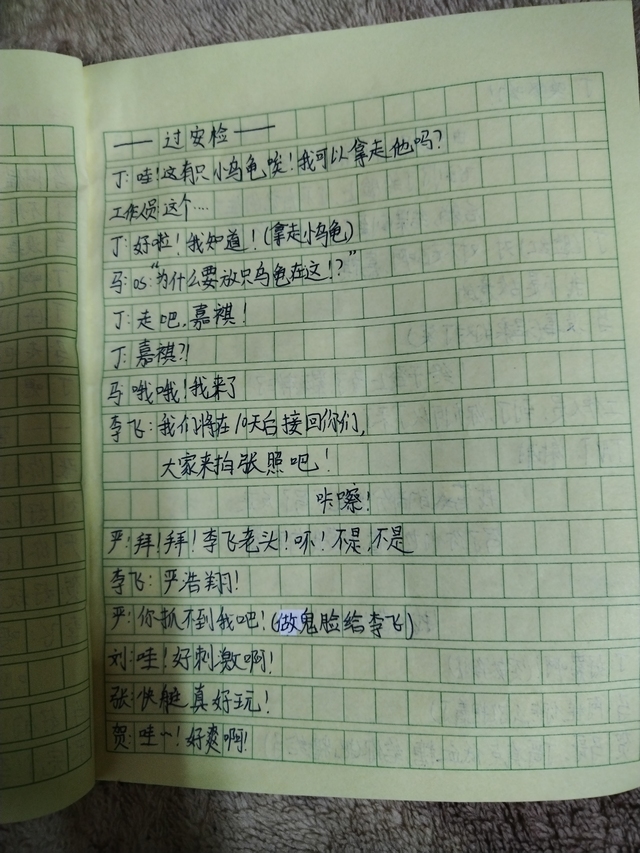 —— 过安检 ——
丁:哇!这有只小乌龟唉!我可以拿走他吗?
工作人员:这个....
丁:好啦!我知道!(拿走小乌龟)
马:os:“为什么要放只乌龟在这!?”
丁:走吧,嘉祺!
丁:嘉祺?!
马:哦哦!我来了
李飞:我们将在10天后接回你们,
大家来拍张照吧!
咔嚓!
严:拜!拜!李飞老头!呸!不是,不是
李飞:严浩翔!
严:你抓不到我吧!(做鬼脸给李飞)
刘:哇!好刺激啊!
张:快艇真好玩!
贺:哇~!好爽啊!